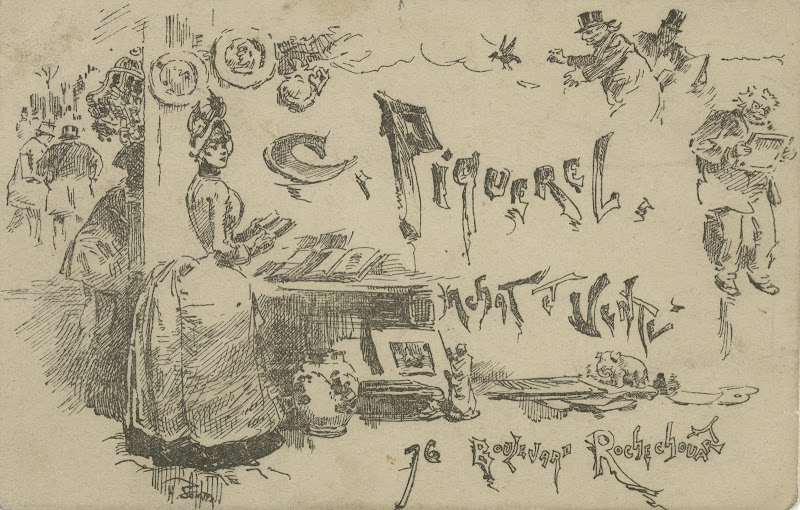 C. PIQUEREL.
ACHAT ET VENTE
76 BOULEVARD ROCHECHOUART